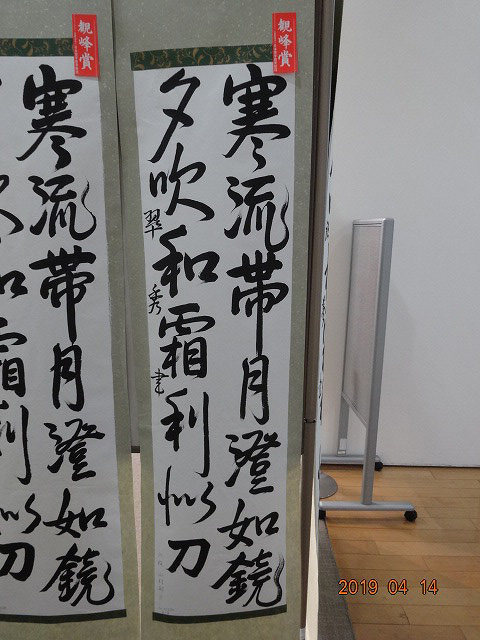 観峰賞
寒流帯月澄如鏡
夕吹和霜利似刀
翠秀書
観峰賞
寒流帯月澄如鏡
和霜利似刀
2019 04 14